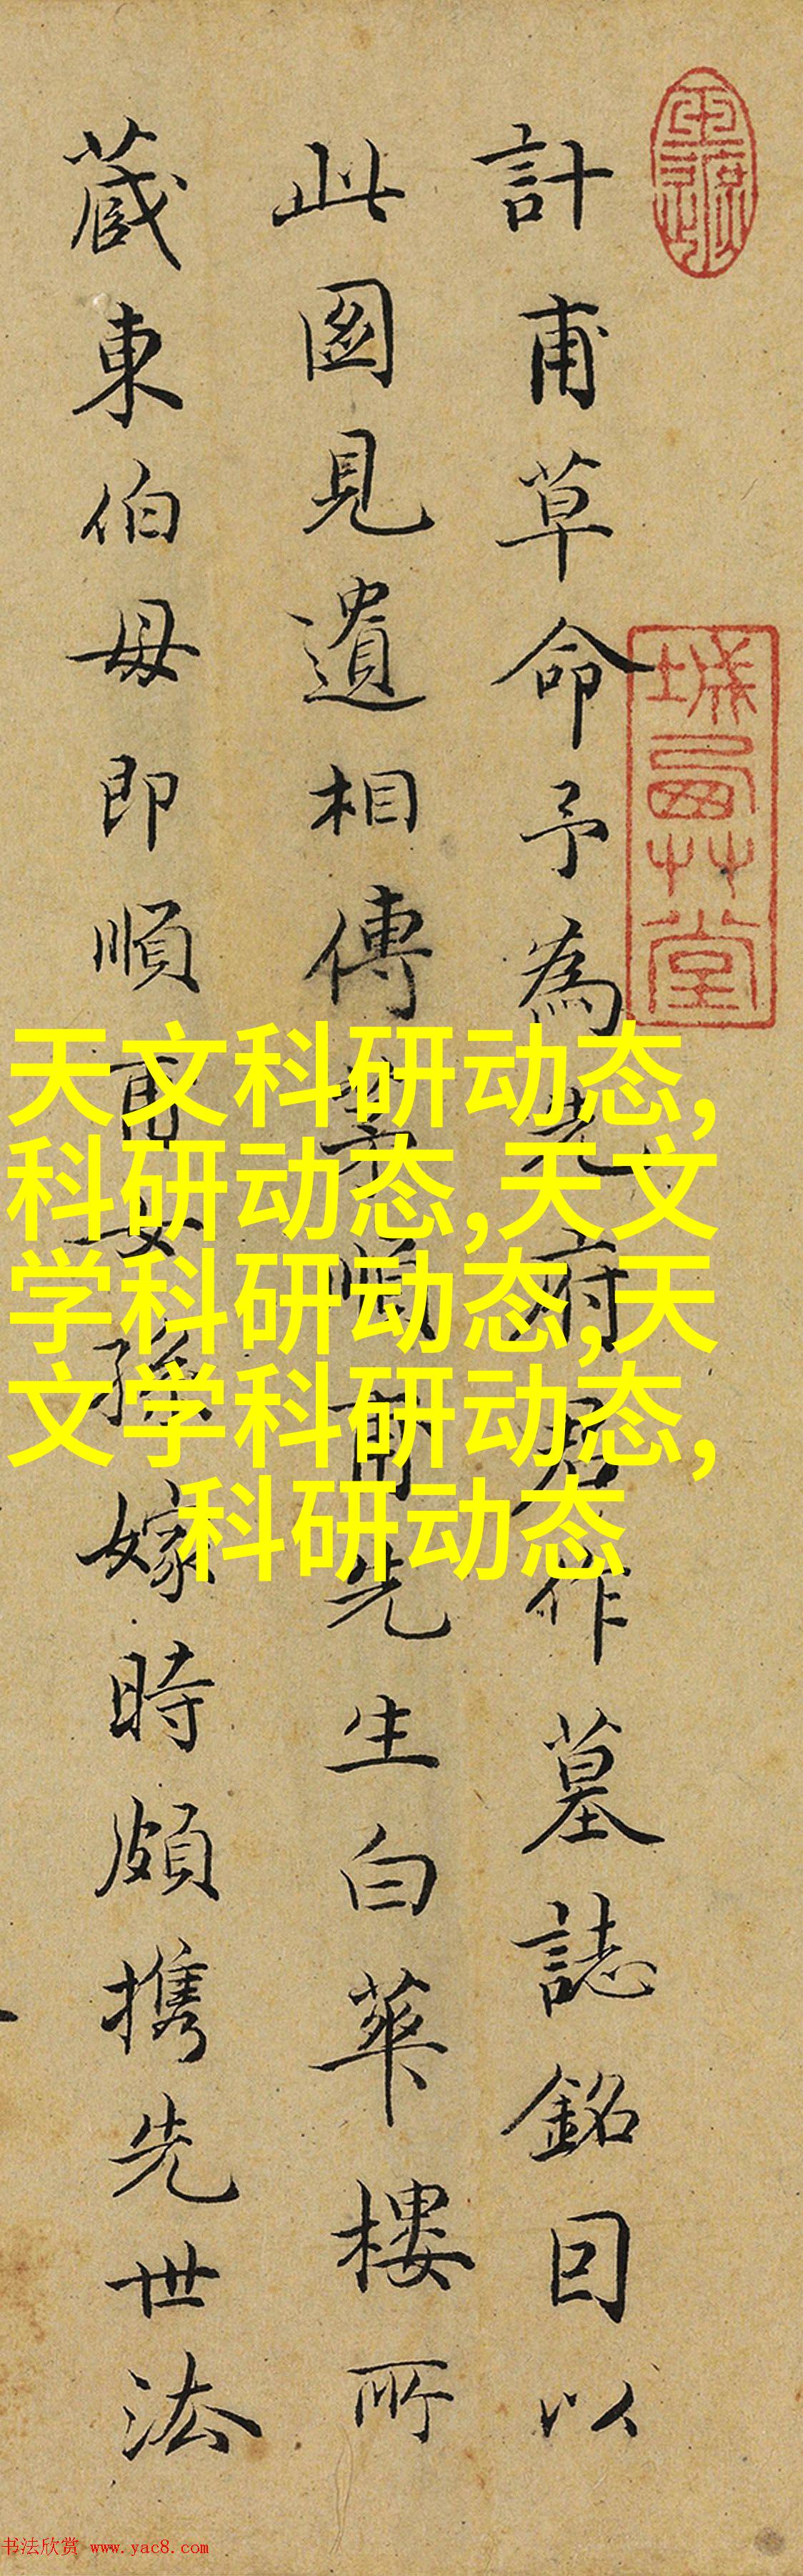 計甫草命予為先府君作墓誌銘囙以
此圖見遺相傳茅順甫先生白華樓所
蔵東伯母即順甫女孫嫁時頗携先世法
城曲艸堂
天文科研动态,
科研动态,天文
学科研动态,天
文学科研动态,
科研动态
书法欣赏 www.yac8.com